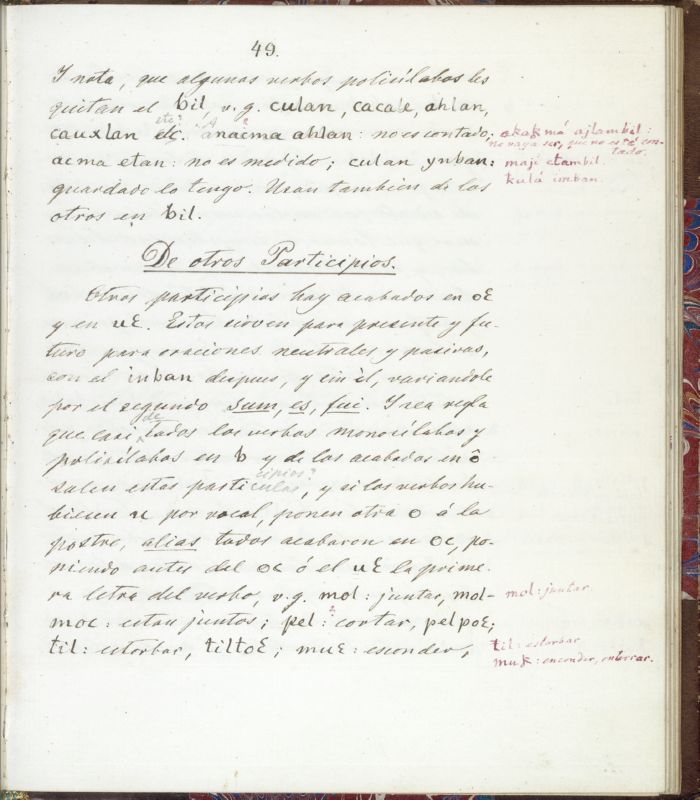 49.
I nota, que algunos verbos policílabos les
quitan el bil, v. g. culan, cacale, ahlan,
cauxlan etc. anacma ahlan: no es contado;
acma etan: no es medido; culan ynban:
guardado lo tengo. Usan tambien de los
otros en bil.
akakmá ajlambil:
no vaya ser, que no esté con-
tado.
maji etambil.
kulá imban.
De otros Participios.
Otros participios hay acabados en oƐ
y en uƐ. Estos sirven para presente y fu-
turo para oraciones neutrales y pasivas,
con el inban despues, y sin èl, variandole
por el segundo sum, es, fui. I sea regla
que casi de todos los verbos monosílabos y
policílabos en b y de los acabados en ô
salen estos participios?, y si los verbos hu-
bieren u por vocal, ponen otra o á la
postre, alias todos acabaron en oc, po-
niendo antes del oc ó el uƐ la prime-
ra letra del verbo, v. g. mol: juntar, mol-
moc: estan juntos; pel: cortar, pelpoƐ;
til: estorbar, tiltoƐ; muƐ: esconder,
mol: juntar
til: estorbar
muk: enconder, enterrar.